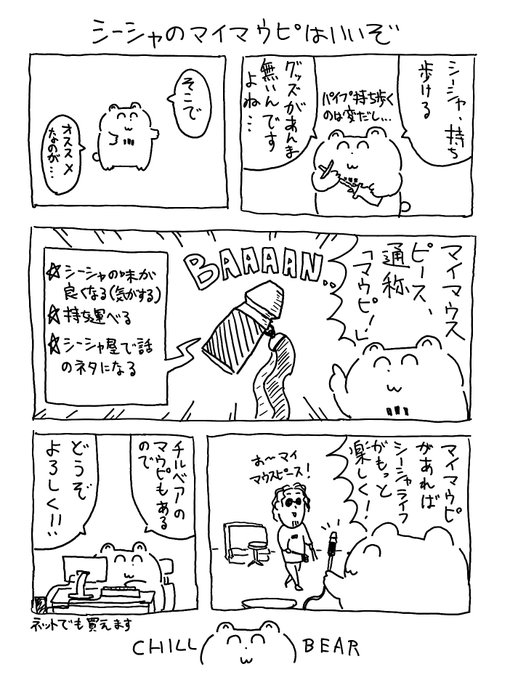 シーシャのマイマウピはいいぞ
シーシャ、持ち
歩ける
グッズがあんま
無いんです
よね…
パイプ持ち歩く
のは変だし…
そこで
オススメ
なのが…
マイマウス
ピース、
通称
「マウピ!」
BAAAAN..
☆シーシャの味が
良くなる(気がする)
☆持ち運べる
☆シーシャ屋で話
のネタになる
マイマウピ
があれば
シーシャライフ
がもっと
楽しく!
お〜マイ
マウスピース!
チルベアの
マウピもある
ので
どうぞ
よろしく!!
ネットでも買えます
CHILL BEAR